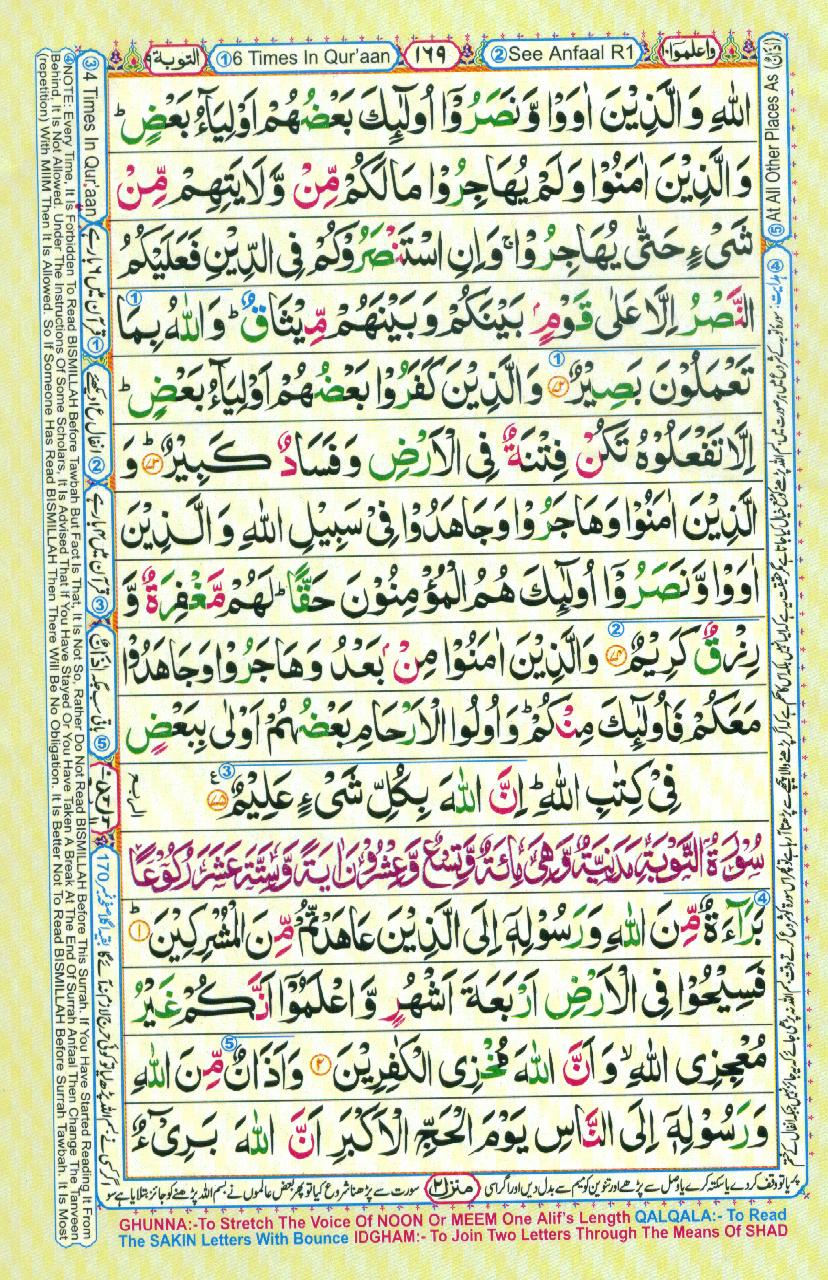 واعلموا١٠
②See Anfaal R1
١٦٩
①6 Times In Qur'aan
التوبة٩
اللهِ وَالَّذِيْنَ اٰوَوْا وَّنَصَرُوْۤا اُولٰٓئِكَ بَعْضُهُمْ اَوْلِيَآءُ بَعْضٍ ؕ
وَالَّذِيْنَ اٰمَنُوْا وَلَمْ يُهَاجِرُوْا مَا لَكُمْ مِّنْ وَّلَايَتِهِمْ مِّنْ
شَيْءٍ حَتّٰى يُهَاجِرُوْا ۚ وَاِنِ اسْتَنْصَرُوْكُمْ فِى الدِّيْنِ فَعَلَيْكُمُ
النَّصْرُ اِلَّا عَلٰى قَوْمٍۭ بَيْنَكُمْ وَبَيْنَهُمْ مِّيْثَاقٌ ؕ وَاللهُ بِمَا ①
تَعْمَلُوْنَ بَصِيْرٌ ①﴿۷۲﴾ وَالَّذِيْنَ كَفَرُوْا بَعْضُهُمْ اَوْلِيَآءُ بَعْضٍ ؕ
اِلَّا تَفْعَلُوْهُ تَكُنْ فِتْنَةٌ فِى الْاَرْضِ وَفَسَادٌ كَبِيْرٌ ؕ﴿۷۳﴾ وَ
الَّذِيْنَ اٰمَنُوْا وَهَاجَرُوْا وَجَاهَدُوْا فِىْ سَبِيْلِ اللهِ وَالَّذِيْنَ
اٰوَوْا وَّنَصَرُوْۤا اُولٰٓئِكَ هُمُ الْمُؤْمِنُوْنَ حَقًّا ؕ لَهُمْ مَّغْفِرَةٌ وَّ
رِزْقٌ كَرِيْمٌ ②﴿۷۴﴾ وَالَّذِيْنَ اٰمَنُوْا مِنْۢ بَعْدُ وَهَاجَرُوْا وَجَاهَدُوْا
مَعَكُمْ فَاُولٰٓئِكَ مِنْكُمْ ؕ وَاُولُوا الْاَرْحَامِ بَعْضُهُمْ اَوْلٰى بِبَعْضٍ
فِىْ كِتٰبِ اللهِ ؕ اِنَّ اللهَ بِكُلِّ شَيْءٍ عَلِيْمٌ ③﴿۷۵﴾ ع
سُوْرَةُ التَّوْبَةِ مَدَنِيَّةٌ وَّهِىَ مِائَةٌ وَّتِسْعٌ وَّعِشْرُوْنَ اٰيَةً وَّسِتَّةَ عَشَرَ رُكُوْعًا
④ بَرَآءَةٌ مِّنَ اللهِ وَرَسُوْلِهٖۤ اِلَى الَّذِيْنَ عَاهَدْتُّمْ مِّنَ الْمُشْرِكِيْنَ ؕ﴿۱﴾
فَسِيْحُوْا فِى الْاَرْضِ اَرْبَعَةَ اَشْهُرٍ وَّاعْلَمُوْۤا اَنَّكُمْ غَيْرُ
مُعْجِزِى اللهِ ۙ وَاَنَّ اللهَ مُخْزِى الْكٰفِرِيْنَ ﴿۲﴾ وَاَذَانٌ ⑤ مِّنَ اللهِ
وَرَسُوْلِهٖۤ اِلَى النَّاسِ يَوْمَ الْحَجِّ الْاَكْبَرِ اَنَّ اللهَ بَرِيْٓءٌ
منزل٢
⑤At All Other Places As (اَذَانٌ)
③4 Times In Qur'aan
قرآن میں ۶ بار ہے ①
انفال ع ا دیکھئے ②
قرآن میں ۴ بار ہے ③
باقی سب جگہ اَذَانٌ ⑤
④NOTE: Every Time, It Is Forbidden To Read BISMILLAH Before Tawbah But Fact Is That, It Is Not So, Rather Do Not Read BISMILLAH Before This Surrah. If You Have Started Reading It From
Behind, It Is Not Allowed. Under The Instructions Of Some Scholars, It Is Advised That If You Have Stayed Or You Have Taken A Break At The End Of Surrah Anfaal Then Change The Tanveen
(repetition) With MIIM Then It Is Allowed. So If Someone Has Read BISMILLAH Then There Will Be No Obligation. It Is Better Not To Read BISMILLAH Before Surrah Tawbah. It Is Most
GHUNNA:-To Stretch The Voice Of NOON Or MEEM One Alif's Length QALQALA:- To Read
The SAKIN Letters With Bounce IDGHAM:- To Join Two Letters Through The Means Of SHAD